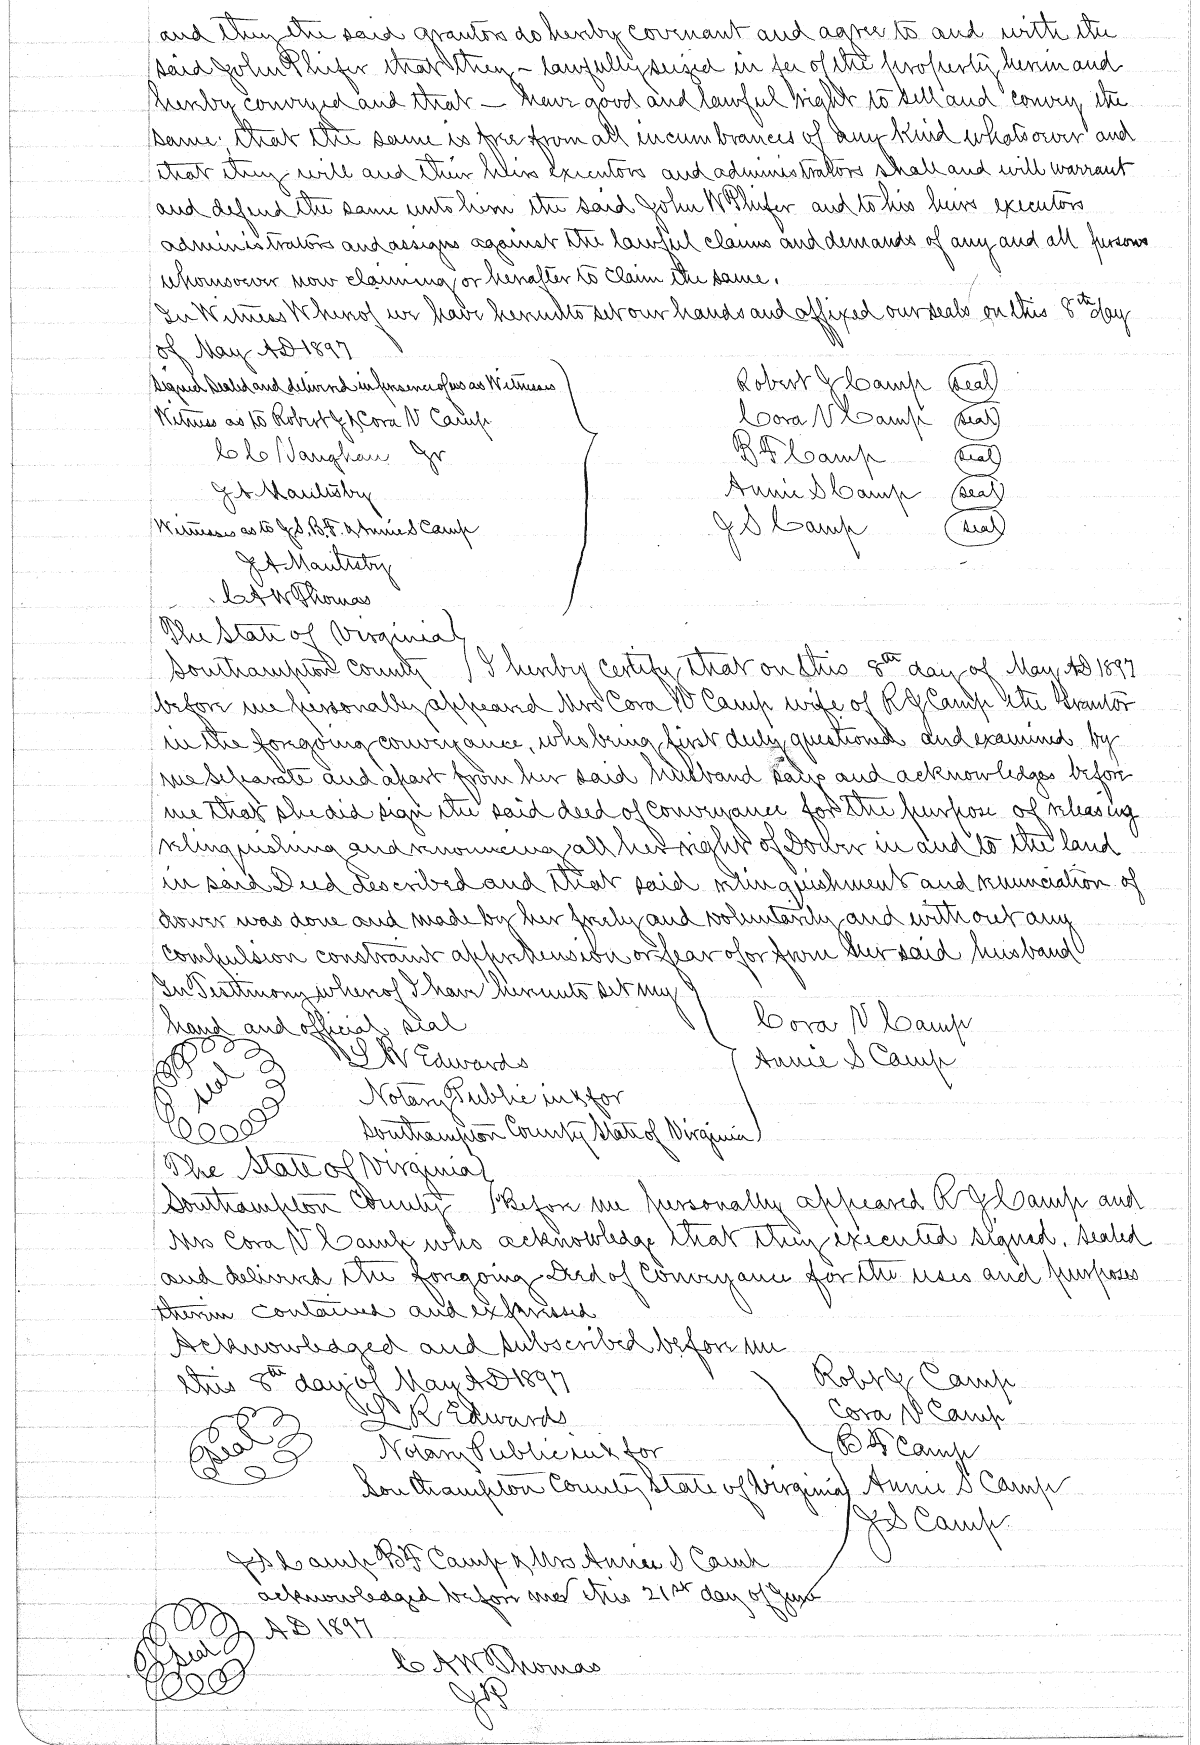 and they the said grantors do hereby covenant and agree to and with the
said John Phifer that they – lawfully seized in fee of the property herein and
hereby conveyed and that — have good and lawful right to sell and convey the
same; that the same is free from all incumbrances of any kind whatsoever and
that they will and their heirs executors and administrators shall and will warrant
and defend the same unto him the said John W Phifer and to his heirs executors
administrators and assigns against the lawful claims and demands of any and all persons
whomsoever now claiming or hereafter to claim the same.
In Witness Whereof we have hereunto set our hands and affixed our seals on this 8th day
of May AD 1897
Signed Sealed and delivered in presence of us as Witnesses
Witness as to Robert J & Cora V Camp
C C Vaughan Jr
J A Maultsby
Witnesses as to J.S, B.F. & Annie S Camp
J A Maultsby
C A W Thomas
Robert J Camp seal
Cora V Camp seal
B F Camp seal
Annie S Camp seal
J S Camp seal
The State of Virginia
Southampton County I hereby certify that on this 8th day of May AD 1897
before me personally appeared Mrs Cora V Camp wife of R J Camp the Grantor
in the foregoing conveyance, who being first duly questioned and examined by
me separate and apart from her said husband says and acknowledges before
me that she did sign the said deed of conveyance for the purpose of releasing
relinquishing and renouncing all her right of Dower in and to the land
in said Deed described and that said relinquishment and renunciation of
dower was done and made by her freely and voluntarily and without any
compulsion constraint apprehension or fear of or from her said husband
In Testimony whereof I have hereunto set my
hand and official seal
Cora V Camp
Annie S Camp
seal
L R Edwards
Notary Public in & for
Southampton County State of Virginia
The State of Virginia
Southampton County Before me personally appeared R J Camp and
Mrs Cora V Camp who acknowledge that they executed signed, sealed
and delivered the foregoing Deed of Conveyance for the uses and purposes
therein contained and expressed
Acknowledged and subscribed before me
this 8th day of May AD 1897
seal
L R Edwards
Notary Public in & for
Southampton County State of Virginia
Robt J Camp
Cora V Camp
B F Camp
Annie S Camp
J S Camp
J S Camp B F Camp & Mrs Annie S Camp
acknowledged before me this 21st day of June
AD 1897
seal
C A W Thomas
JP